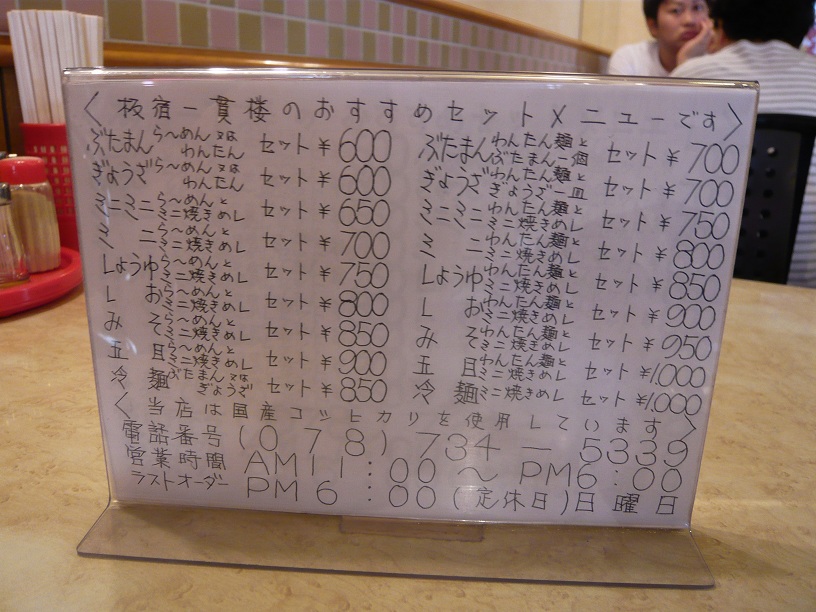 〈板宿一貫楼のおすすめセットメニューです〉
ぶたまん ら〜めん又はわんたん セット¥600
ぎょうざ ら〜めん又はわんたん セット¥600
ミニミニ ら〜めんとミニ焼きめし セット¥650
ミニ ら〜めんとミニ焼きめし セット¥700
しょうゆ ら〜めんとミニ焼きめし セット¥750
しお ら〜めんとミニ焼きめし セット¥800
みそ ら〜めんとミニ焼きめし セット¥850
五目 ら〜めんとミニ焼きめし セット¥900
冷麺 ぶたまん又はぎょうざ セット¥850
ぶたまん わんたん麺とぶたまん一個 セット¥700
ぎょうざ わんたん麺とぎょうざ一皿 セット¥700
ミニミニ わんたん麺とミニ焼きめし セット¥750
ミニ わんたん麺とミニ焼きめし セット¥800
しょうゆ わんたん麺とミニ焼きめし セット¥850
しお わんたん麺とミニ焼きめし セット¥900
みそ わんたん麺とミニ焼きめし セット¥950
五目 わんたん麺とミニ焼きめし セット¥1,000
冷麺 ミニ焼きめし セット¥1,000
〈当店は国産コシヒカリを使用しています〉
電話番号(078)734-5339
営業時間 AM11:00〜PM6:00
ラストオーダー PM6:00(定休日)日曜日